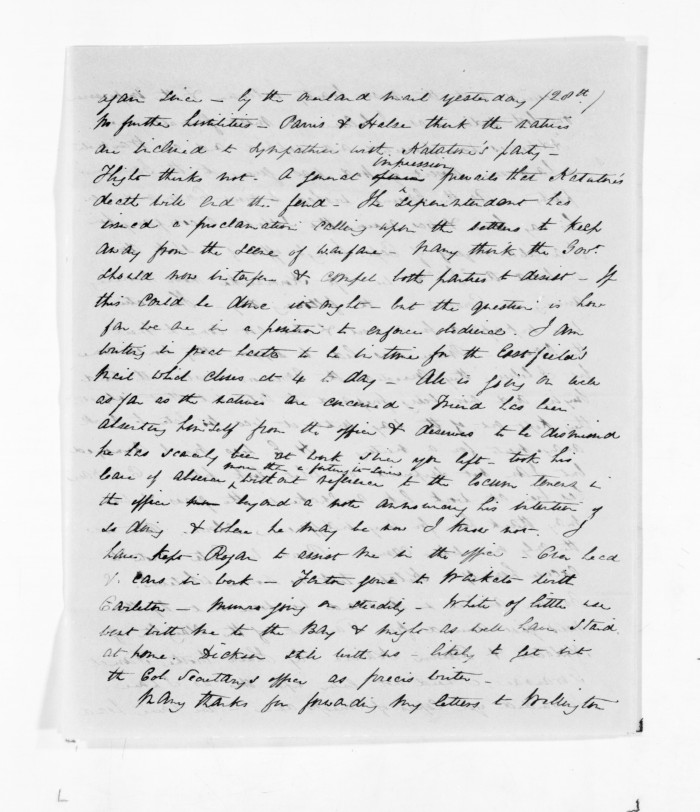 again since - by the overland mail yesterday (28th)
No further hostilities - Parris & Halse think the natives
are inclined to sympathise with Katatore's party -
Flight thinks not. A general impression prevails that Katatore's
death will end the feud - The Superintendent has
issued a proclamation calling upon the settlers to keep
away from the scene of warfare - Many think the Govt.
should now interfere & compel both parties to desist - If
this could be done it ought - but the question is how
far we are in a position to enforce obedience. I am
writing in great haste to be in time for the
Mail which closes at 4 to day - All is going on well
as far as the natives are concerned - has been
absenting himself from the office & deserves to be dismissed
he has scarcely been at work since you left - took his
leave of absence more than a fortnight since without reference to the locum tenens in
the office beyond a note announcing his intention of
so doing & where he may be now I know not. I
have kept Rogan to assist me in the office - Over head
& ears in work - gone to Waikato with
- Munro going on steadily - White of little use
went with me to the Bay & might as well have staid
at home. still with us - likely to get into
the Col Secretarys office as precis writer -
Many thanks for forwarding my letters to Wellington